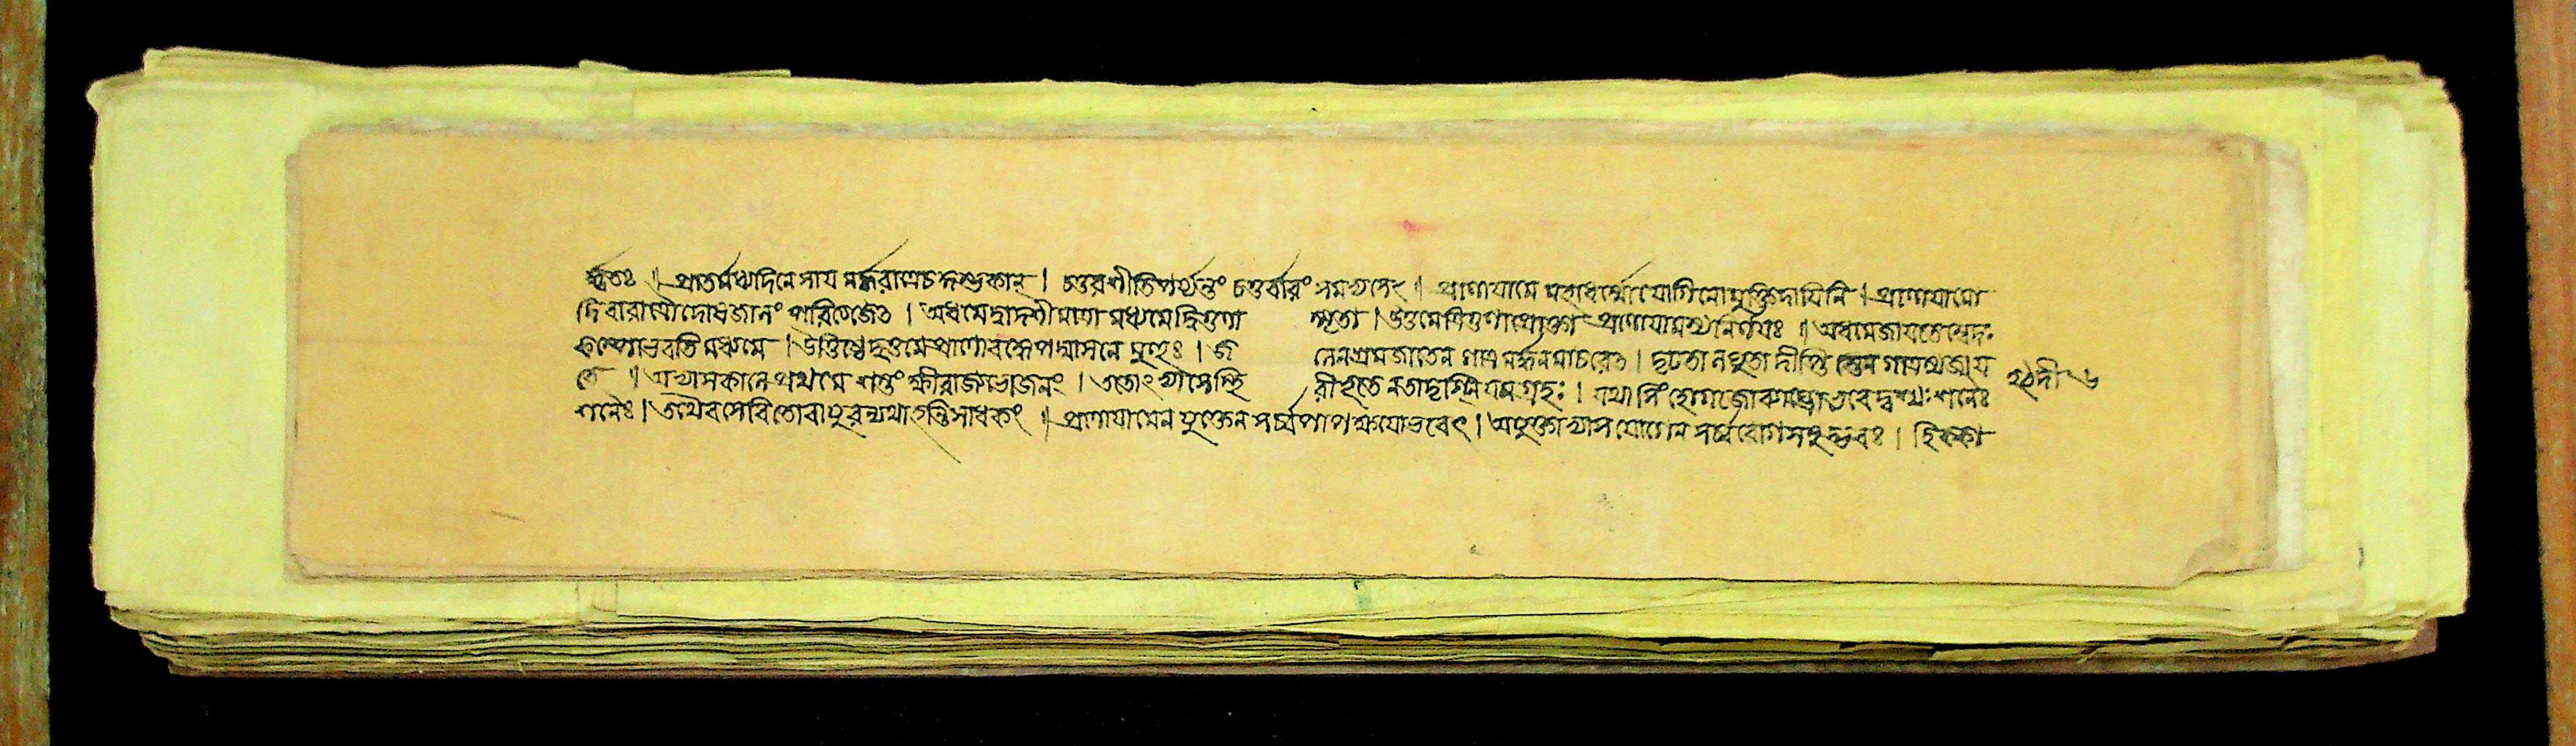 র্দ্ধতঃ ॥ প্রাতর্মধ্যদিনে সায়মর্দ্ধরাত্রেচ কুম্ভকান্ । চতুরশীতিপর্য্যন্তং চতুর্বারং সমভ্যসেৎ ॥ প্রাণায়ামে মহাধর্ম্মো যোগিনো মুক্তিদায়িনি । প্রাণায়ামো
দিবারাত্রৌ দোষজালং পরিত্যজেৎ । অধমে দ্বাদশী মাত্রা মধ্যমে দ্বিগুণা স্মৃতা । উত্তমে ত্রিগুণা প্রোক্তা প্রাণায়ামস্য নির্ণয়ঃ ॥ অধমে জায়তে স্বেদঃ
কম্পো ভবতি মধ্যমে । উত্তিষ্ঠেদুত্তমে প্রাণো বদ্ধে পদ্মাসনে মুহুঃ । জলেন শ্রমজাতেন গাত্রমর্দ্দনমাচরেৎ । দৃঢতা লঘুতা দীপ্তি স্তেন গাত্রস্য জায়
তে ॥ অভ্যাসকালে প্রথমে শস্তং ক্ষীরাজ্যভোজনং । ততোঽভ্যাসে স্থিরীভূতে ন তাদৃগ্নিয়মগ্রহঃ । যথা সিংহো গজো ব্যাঘ্রো ভবেদ্বশ্যঃ শনৈঃ
শনৈঃ । তথৈব সেবিতো বায়ুরন্যথা হন্তি সাধকং ॥ প্রাণায়ামেন যুক্তেন সর্ব্বপাপক্ষয়ো ভবেৎ । অযুক্তাভ্যাসযোগেন সর্ব্বরোগসমুদ্ভবঃ । হিক্কা